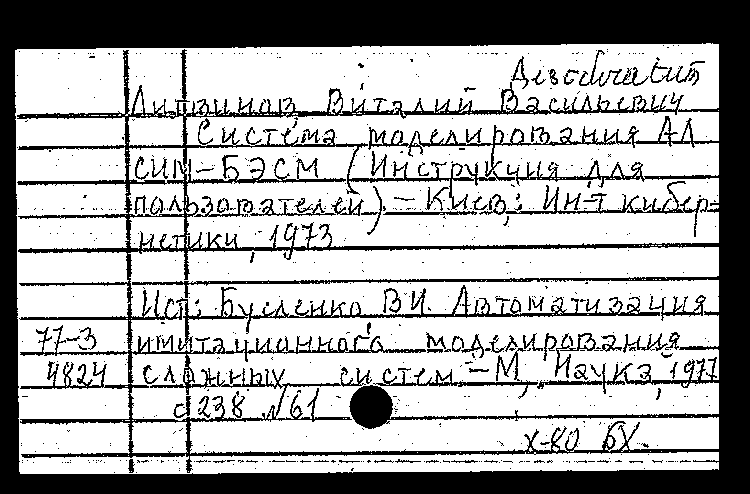 Desideratum
Литвинов Виталий Васильевич
Система моделирования АЛ
СИМ-БЭСМ (Инструкция для
пользователей). - Киев: Ин-т кибер-
нетики, 1973
Ист: Бусленко В.Н. Автоматизация
77-3 имитационного моделирования
4824 сложных систем - М, Наука, 1977
с 238 №61
X-80 БХ.